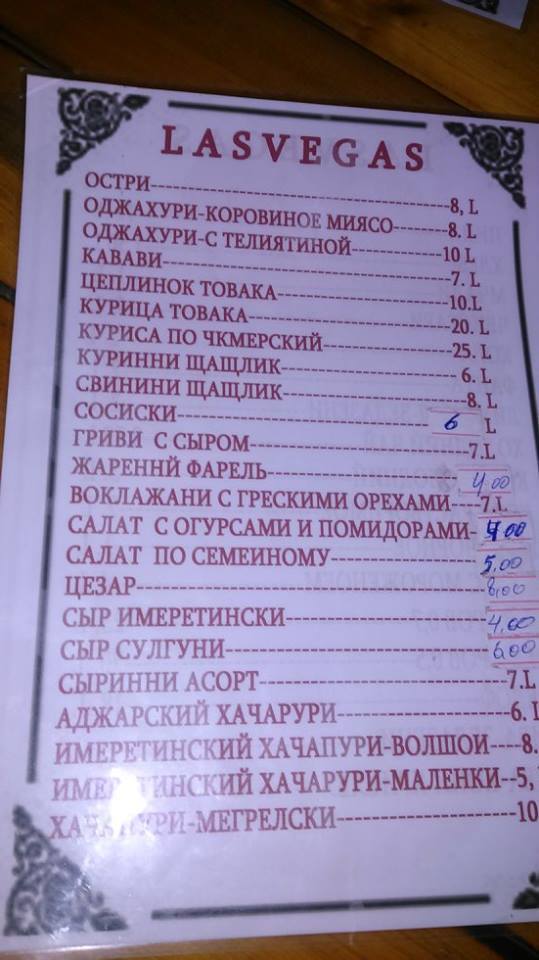 LASVEGAS
ОСТРИ---------------------------------8, L
ОДЖАХУРИ-КОРОВИНОЕ МИЯСО------8. L
ОДЖАХУРИ-С ТЕЛИЯТИНОЙ-----------10 L
КАВАВИ-------------------------------7. L
ЦЕПЛИНОК ТОВАКА--------------------10.L
КУРИЦА ТОВАКА-----------------------20. L
КУРИСА ПО ЧКМЕРСКИЙ---------------25. L
КУРИННИ ЩАЩЛИК--------------------6. L
СВИНИНИ ЩАЩЛИК---------------------8. L
СОСИСКИ-----------------------------6 L
ГРИВИ С СЫРОМ-----------------------7.L
ЖАРЕННЙ ФАРЕЛЬ---------------------4.00
ВОКЛАЖАНИ С ГРЕСКИМИ ОРЕХАМИ----7.L
САЛАТ С ОГУРСАМИ И ПОМИДОРАМИ-4.00
САЛАТ ПО СЕМЕИНОМУ---------------5.00
ЦЕЗАР--------------------------------8.00
СЫР ИМЕРЕТИНСКИ-------------------4.00
СЫР СУЛГУНИ------------------------6.00
СЫРИННИ АСОРТ----------------------7.L
АДЖАРСКИЙ ХАЧАРУРИ---------------6. L
ИМЕРЕТИНСКИЙ ХАЧАПУРИ-ВОЛШОИ----8.
ИМЕРЕТИНСКИЙ ХАЧАРУРИ-МАЛЕНКИ--5,
ХАЧАПУРИ-МЕГРЕЛСКИ----------------10